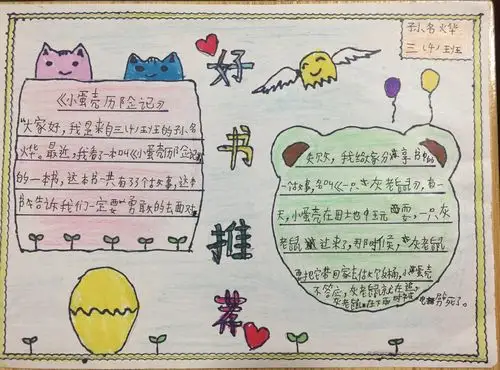 孙名烨
三(4)班
好书推荐
《小蛋壳历险记》
"大家好,我是来自三(4)班的孙名
烨。最近,我看了一本叫《小蛋壳历险记》
的一本书,这本书一共有33个故事,这本
书告诉我们一定要勇敢的去面对。
我给家分享书
一个故事,名叫《一只灰老鼠》,有一
天,小蛋壳在田土也中玩耍,一只灰
老鼠过来了,那时候,灰老鼠
要把它带回家去
不答应,灰老鼠
死了。